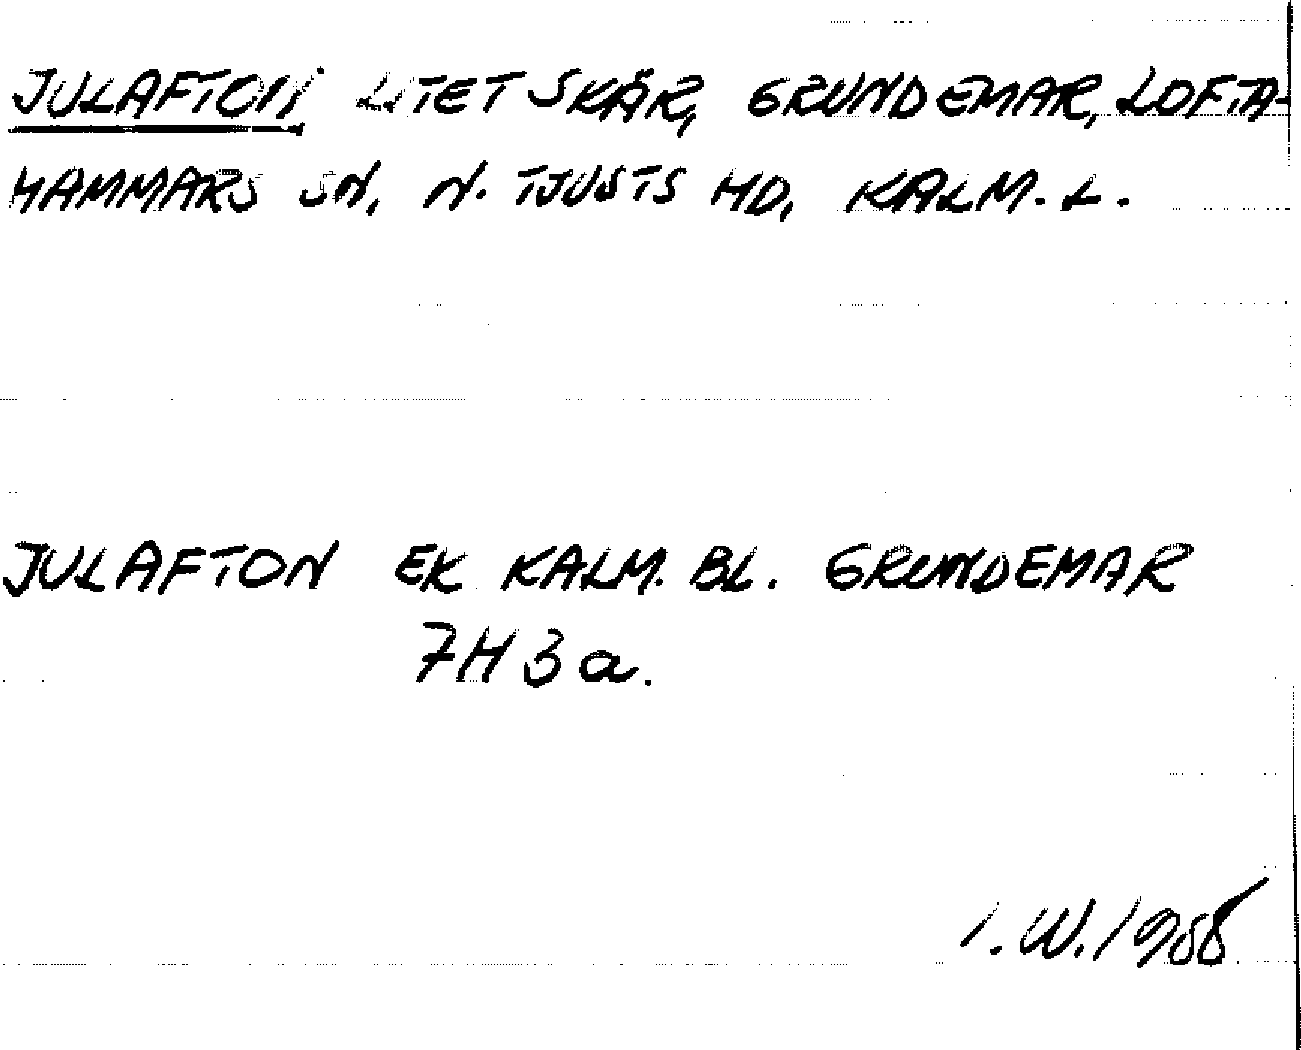 JULAFTON LITET SKÄR, GRUNDEMAR, LOFTA-
HAMMARS SN, N. TJUSTS HD, KALM. L.
JULAFTON EK KALM. BL. GRUNDEMAR
7H3a.
I.W. 1988